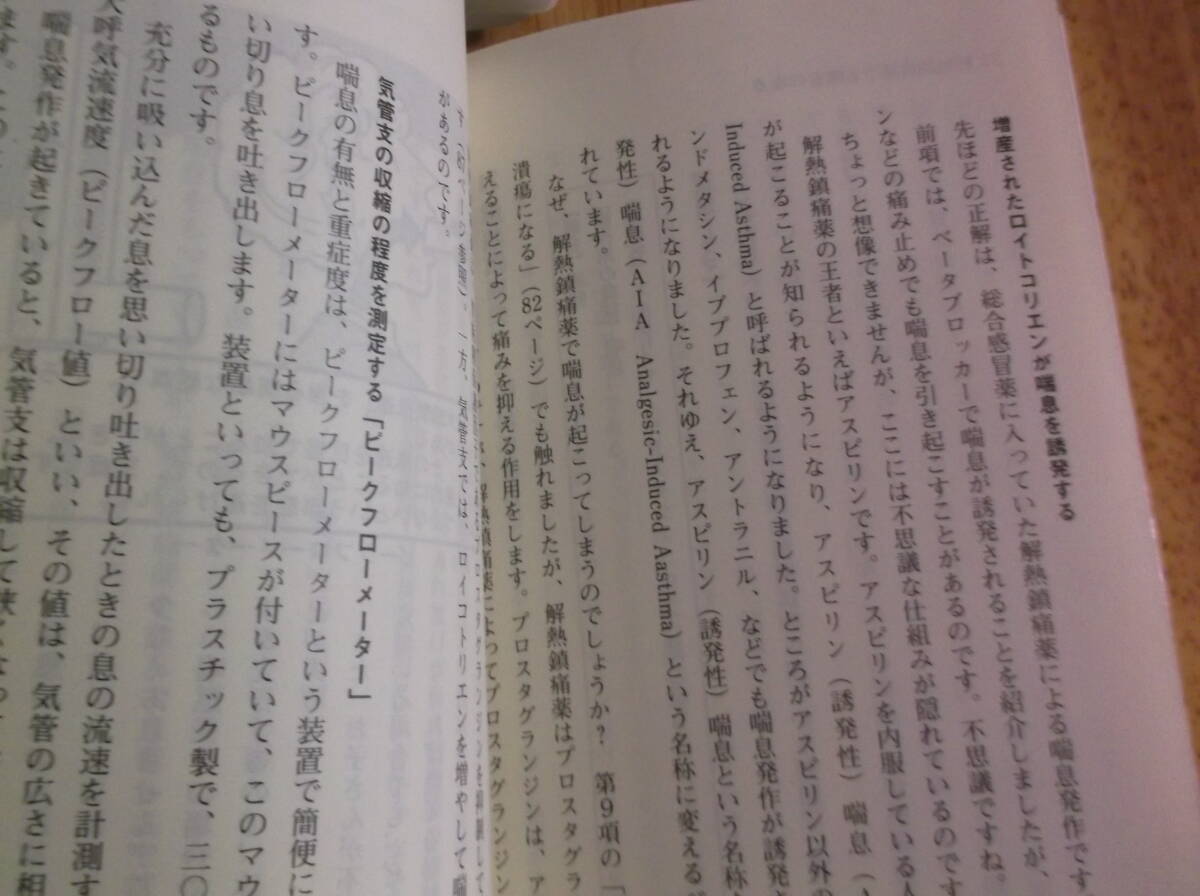 増産されたロイトコリエンが喘息を誘発する
先ほどの正解は、総合感冒薬に入っていた解熱鎮痛薬による喘息発作です
前項では、ベータブロッカーで喘息が誘発されることを紹介しましたが、
ンなどの痛み止めでも喘息を引き起こすことがあるのです。不思議ですね。
ちょっと想像できませんが、ここには不思議な仕組みが隠れているのです
解熱鎮痛薬の王者といえばアスピリンです。アスピリンを内服している人
が起こることが知られるようになり、アスピリン（誘発性）喘息（A
Induced Asthma）と呼ばれるようになりました。ところがアスピリン以外の
ンドメタシン、イブプロフェン、アントラニル、などでも喘息発作が誘発
れるようになりました。それゆえ、アスピリン（誘発性）喘息という名称
発性）喘息（AIA Analgesic-Induced Aasthma）という名称に変える
れています。
なぜ、解熱鎮痛薬で喘息が起こってしまうのでしょうか？ 第9項の「
潰瘍になる」（82ページ）でも触れましたが、解熱鎮痛薬はプロスタグラ
えることによって痛みを抑える作用をします。プロスタグランジンは、ア
、解熱鎮痛薬によってプロスタグランジン
ページ参照）。一方、気管支では、ロイコトリエンを増やして喘
があるのです。
気管支の収縮の程度を測定する「ピークフローメーター」
喘息の有無と重症度は、ピークフローメーターという装置で簡便に
す。ピークフローメーターにはマウスピースが付いていて、このマウ
い切り息を吐き出します。装置といっても、プラスチック製で、三〇
るものです。
充分に吸い込んだ息を思い切り吐き出したときの息の流速を計測す
大呼気流速度（ピークフロー値）といい、その値は、気管の広さに相
喘息発作が起きていると、気管支は収縮して狭くなって
ます。この